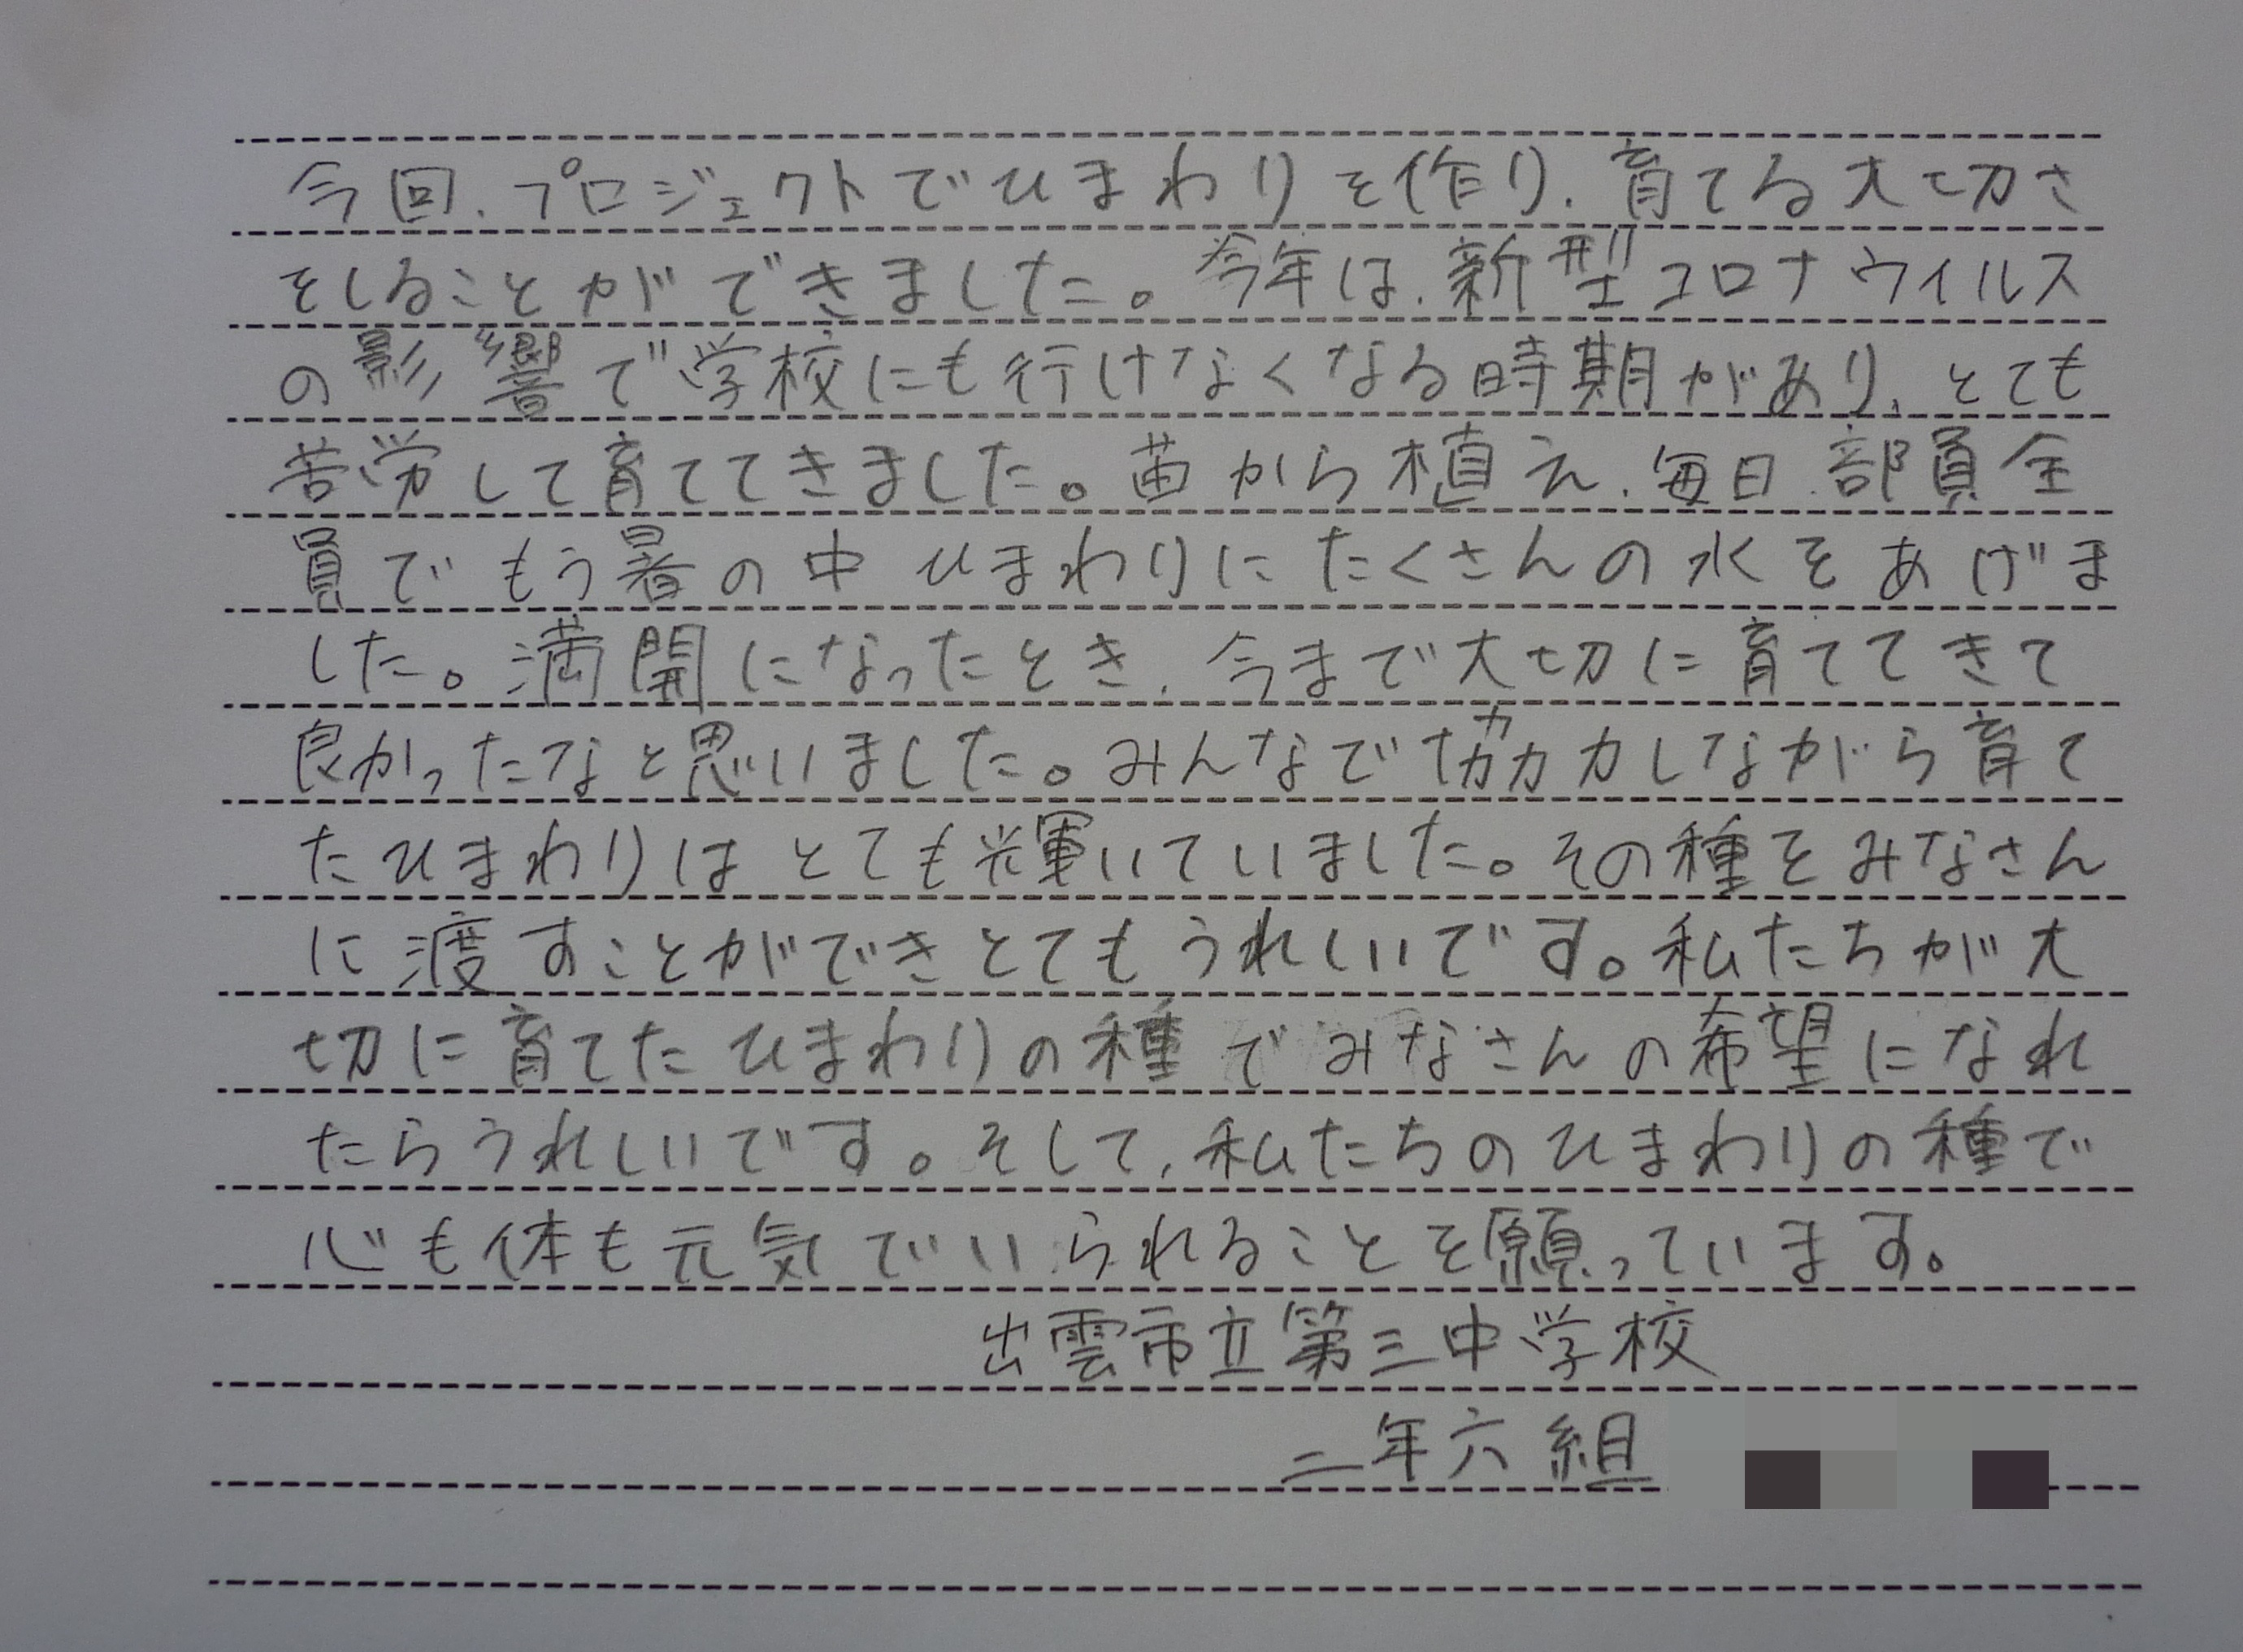 今回、プロジェクトでひまわりを作り、育てる大切さ
をしることができました。今年は、新型コロナウイルス
の影響で学校にも行けなくなる時期があり、とても
苦労して育ててきました。苗から植え、毎日、部員全
員でもう暑の中ひまわりにたくさんの水をあげま
した。満開になったとき、今まで大切に育ててきて
良かったなと思いました。みんなで協力しながら育て
たひまわりはとても輝いていました。その種をみなさん
に渡すことができとてもうれしいです。私たちが大
切に育てたひまわりの種でみなさんの希望になれ
たらうれしいです。そして、私たちのひまわりの種で
心も体も元気でいられることを願っています。
出雲市立第三中学校
二年六組